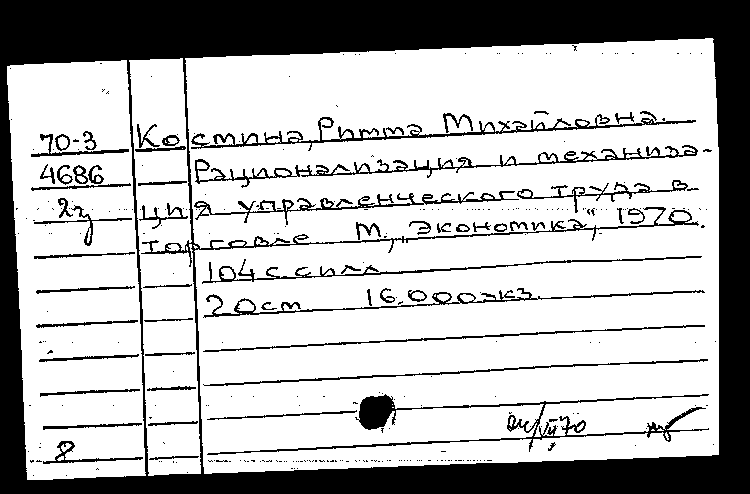 70-3 Костина, Римма Михайловна.
4686 Рационализация и механиза-
2з ция управленческого труда в
торговле М., „Экономика", 1970.
104 с с илл
20см 16.000экз.
VII 70
8